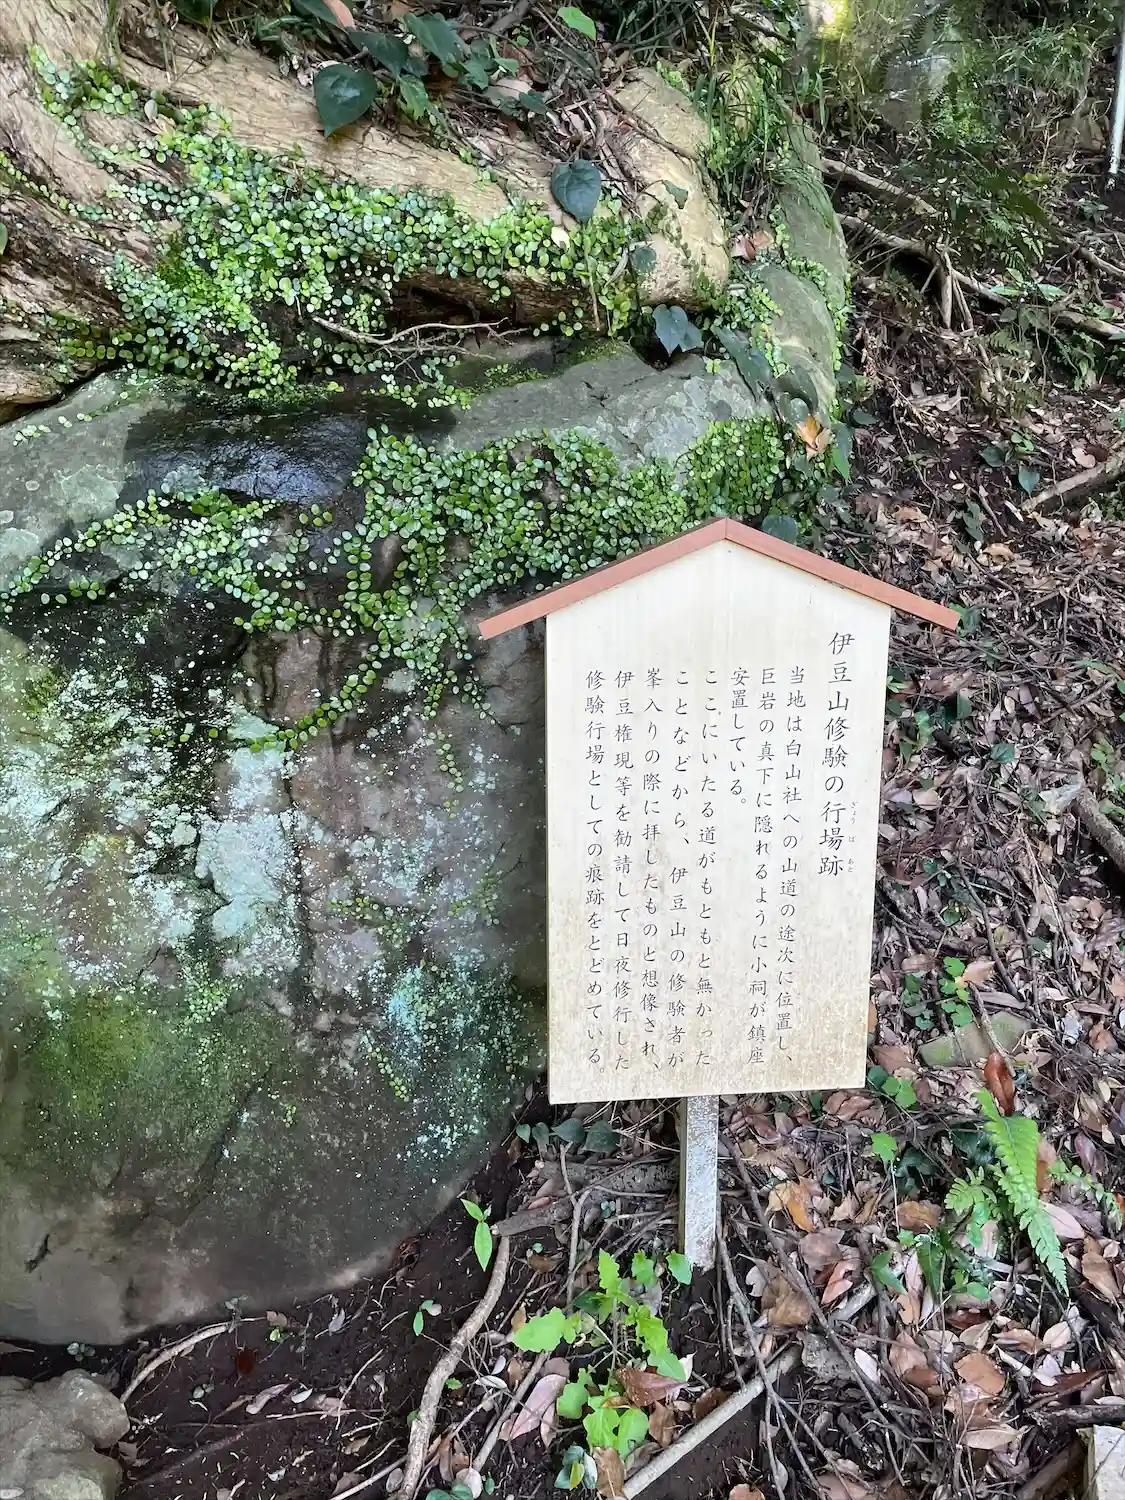 伊豆山修験の行場跡
ぎょうばあと
当地は白山社への山道の途次に位置し、
巨岩の真下に隠れるように小祠が鎮座
安置している。
ここにいたる道がもともと無かった
ことなどから、伊豆山の修験者が
峯入りの際に拝したものと想像され、
伊豆権現等を勧請して日夜修行した
修験行場としての痕跡をとどめている。